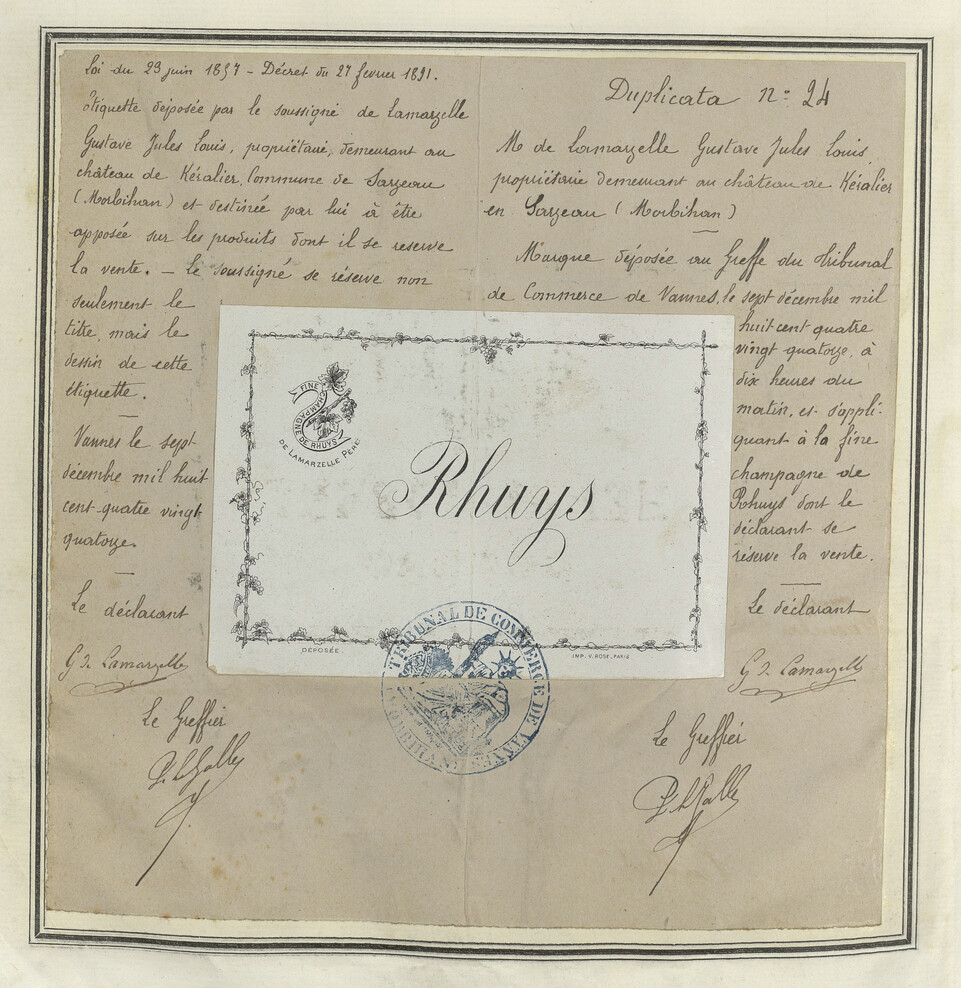 Loi du 23 juin 1857 - Décret du 27 février 1891.
étiquette déposée par le soussigné de Lamarzelle
Gustave Jules Louis, propriétaire, demeurant au
château de Kéralier, Commune de Sarzeau
(Morbihan) et destinée par lui à être
apposée sur les produits dont il se reserve
la vente. - Le soussigné se réserve non
seulement le
titre, mais le
dessin de cette
étiquette.
Vannes le sept
décembre mil huit
cent-quatre vingt
quatorze.
Le déclarant
G de Lamarzelle
Le Greffier
Duplicata n° 24
M de Lamarzelle Gustave Jules Louis,
propriétaire demeurant au château de Kéralier
en Sarzeau (Morbihan)
Marque déposée au Greffe du Tribunal
de Commerce de Vannes, le sept décembre mil
huit cent quatre
vingt quatorze, à
dix heures du
matin, et s'appli-
quant à la fine
champagne de
Rhuys dont le
déclarant se
réserve la vente.
Le déclarant
G de Lamarzelle
Le Greffier
FINE CHAMPAGNE DE RHUYS
DE LAMARZELLE PÈRE
Rhuys
DÉPOSÉE
IMP. V. ROSE, PARIS
TRIBUNAL DE COMMERCE DE VANNES
(MORBIHAN)